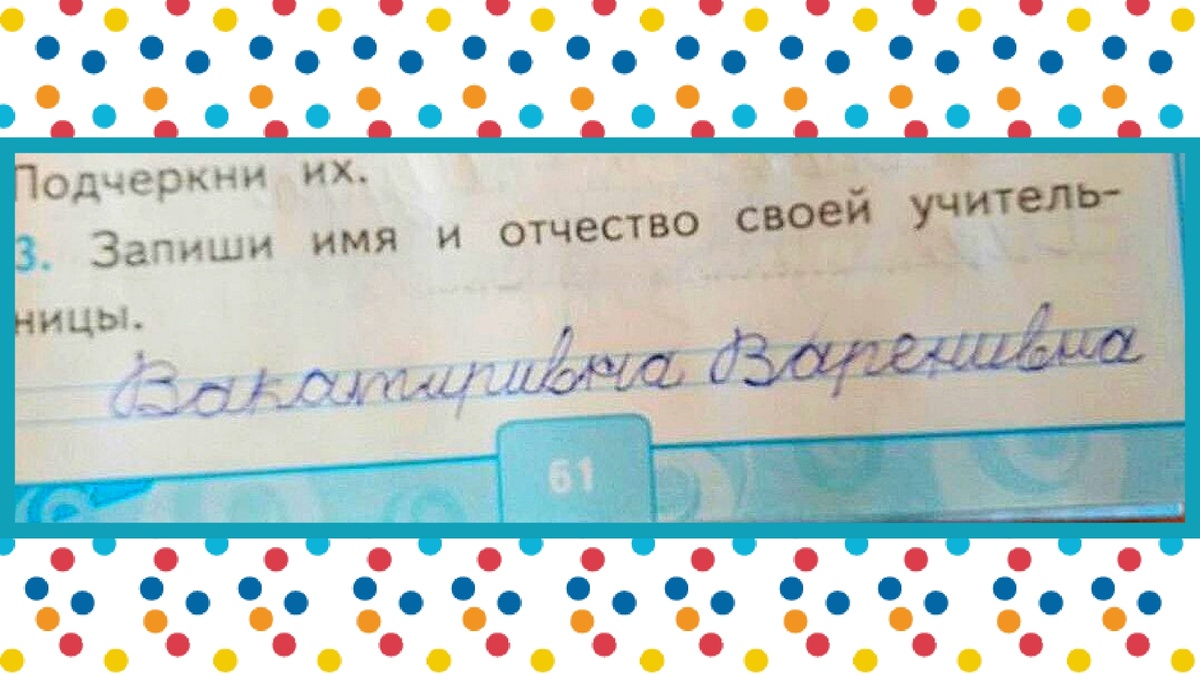 Подчеркни их.
3. Запиши имя и отчество своей учитель-
ницы.
Вакатиривна Варенивна
61